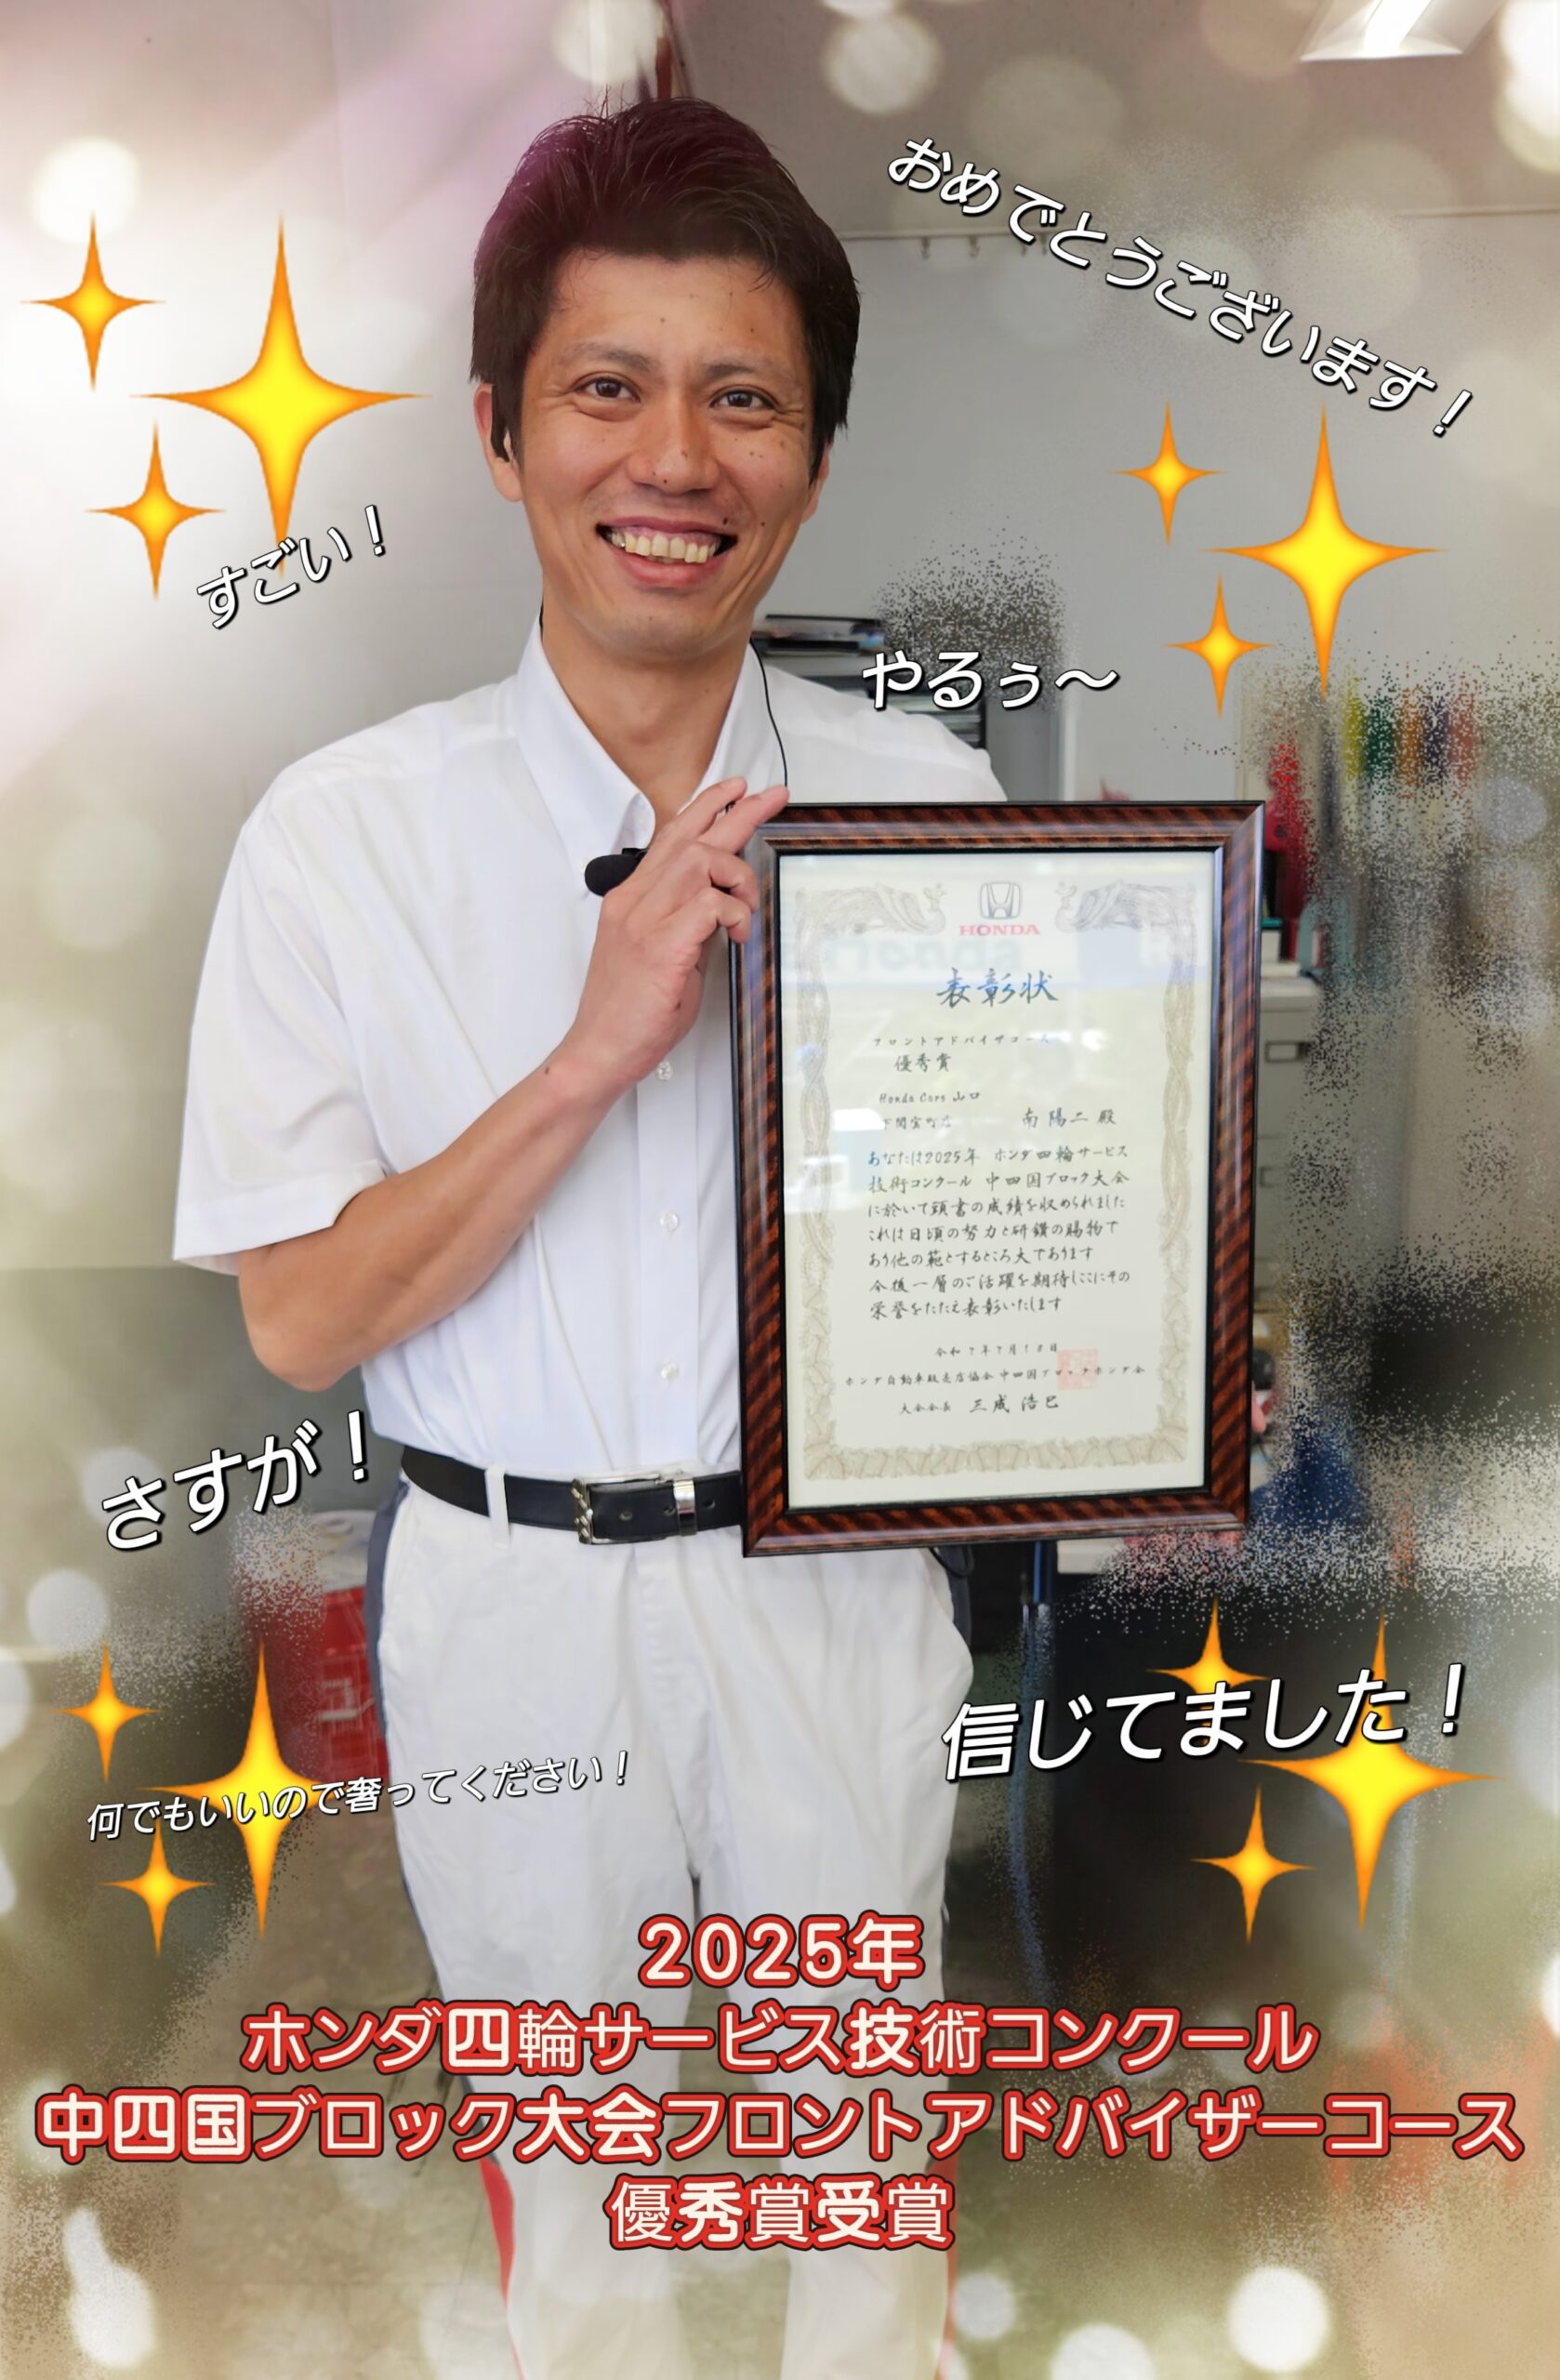 おめでとうございます！
すごい！
やるぅ〜
HONDA
表彰状
フロントアドバイザコース
優秀賞
Honda Cars 山口
下関宝町店 南陽二殿
あなたは2025年 ホンダ四輪サービス
技術コンクール 中四国ブロック大会
に於いて頭書の成績を収められました
これは日頃の努力と研鑽の賜物で
あり他の範とするところ大であります
今後一層のご活躍を期待しここにその
栄誉をたたえ表彰いたします
令和7年7月18日
ホンダ自動車販売店協会 中四国ブロックホンダ会
大会会長 三成浩巳
さすが！
信じてました！
何でもいいので奢ってください！
2025年
ホンダ四輪サービス技術コンクール
中四国ブロック大会フロントアドバイザーコース
優秀賞受賞